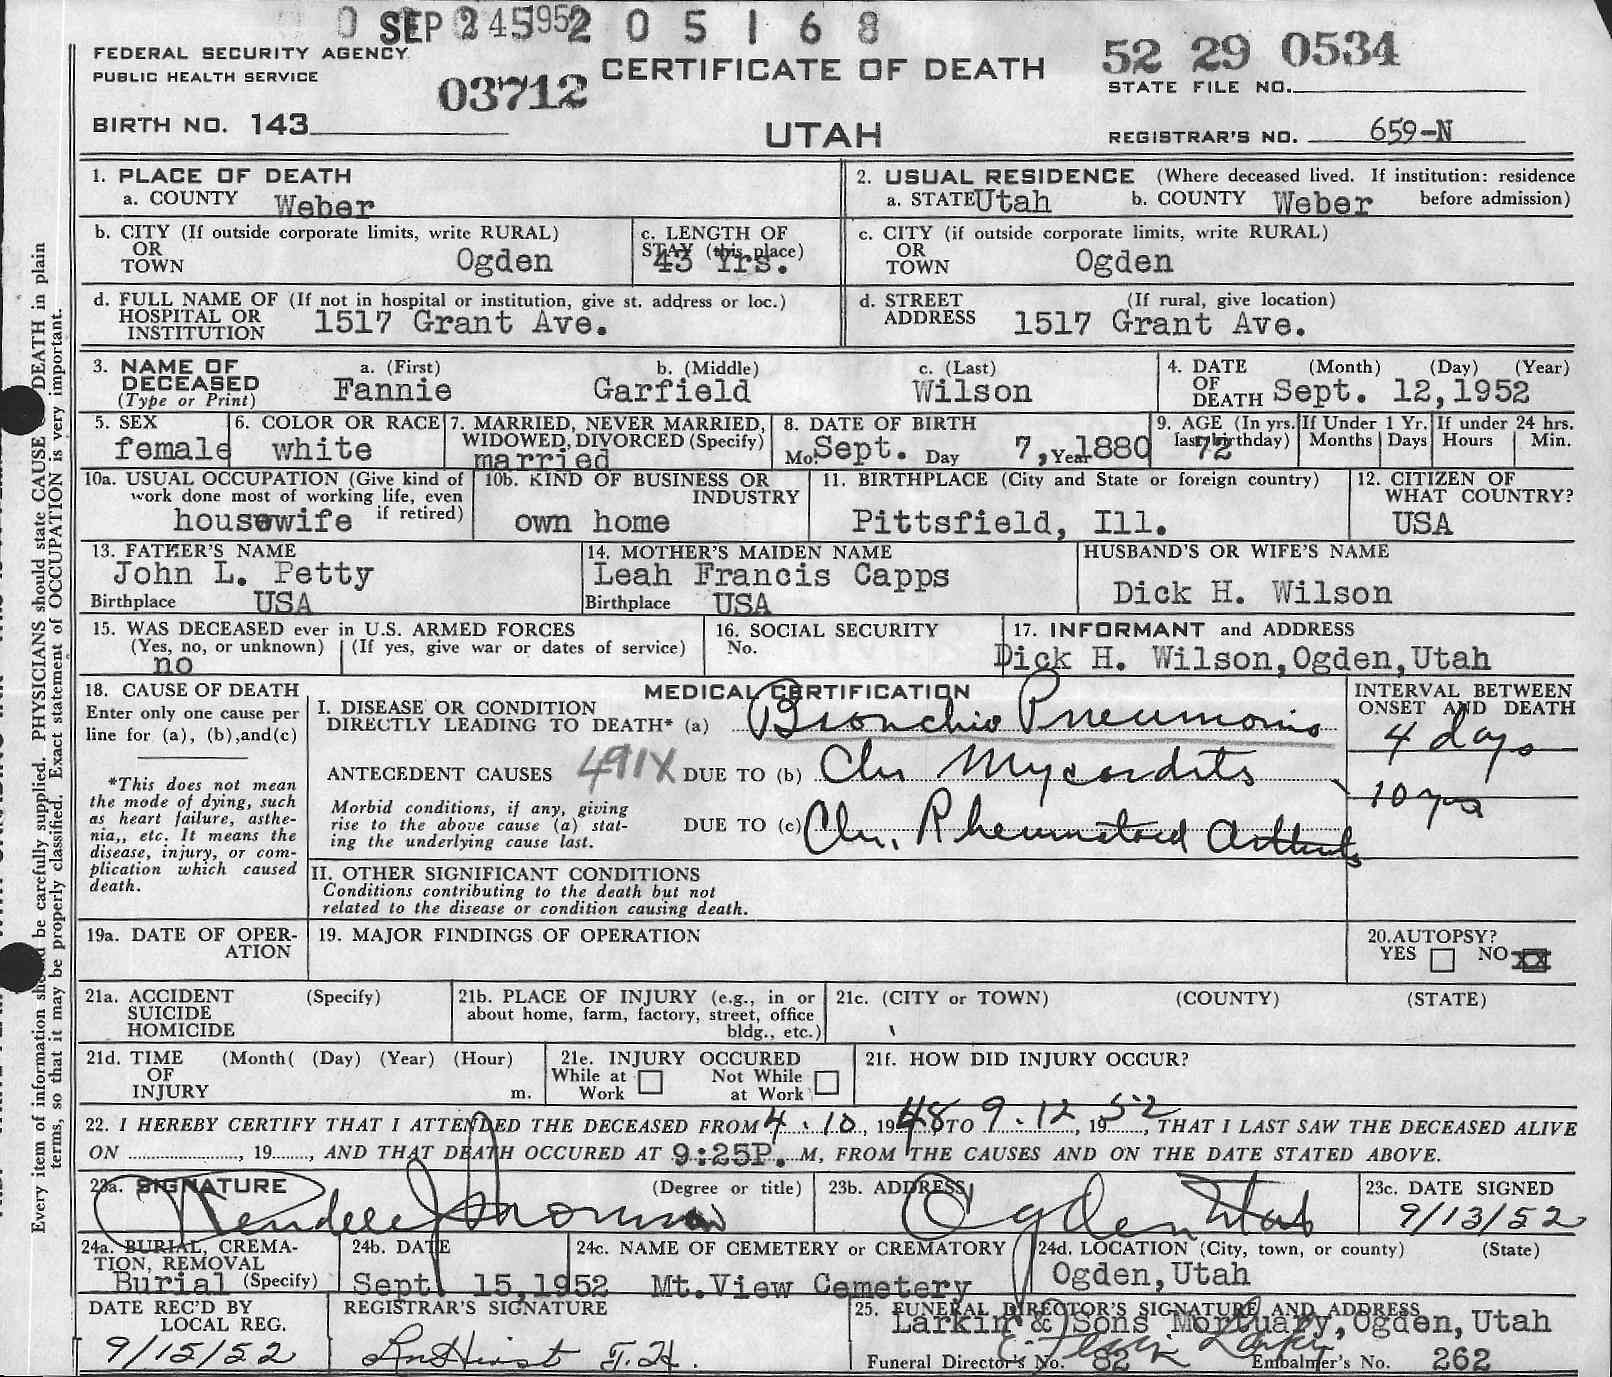 SEP 24 1952 0 5 1 6 8
FEDERAL SECURITY AGENCY
PUBLIC HEALTH SERVICE
03712
CERTIFICATE OF DEATH
52 29 0534
STATE FILE NO.
BIRTH NO. 143
UTAH
REGISTRAR'S NO. 659-N
1. PLACE OF DEATH
a. COUNTY Weber
2. USUAL RESIDENCE (Where deceased lived. If institution: residence
a. STATE Utah b. COUNTY Weber before admission)
b. CITY (If outside corporate limits, write RURAL)
OR
TOWN Ogden
c. LENGTH OF
STAY (this place)
43 Yrs.
c. CITY (if outside corporate limits, write RURAL)
OR
TOWN Ogden
d. FULL NAME OF (If not in hospital or institution, give st. address or loc.)
HOSPITAL OR
INSTITUTION 1517 Grant Ave.
d. STREET (If rural, give location)
ADDRESS 1517 Grant Ave.
3. NAME OF
DECEASED
(Type or Print)
a. (First) b. (Middle) c. (Last)
Fannie Garfield Wilson
4. DATE (Month) (Day) (Year)
OF
DEATH Sept. 12,1952
5. SEX
female
6. COLOR OR RACE
white
7. MARRIED, NEVER MARRIED,
WIDOWED, DIVORCED (Specify)
married
8. DATE OF BIRTH
Mo. Sept. Day 7, Year 1880
9. AGE (In yrs.
last birthday)
72
If Under 1 Yr.
Months Days
If under 24 hrs.
Hours Min.
10a. USUAL OCCUPATION (Give kind of
work done most of working life, even
housewife if retired)
10b. KIND OF BUSINESS OR
INDUSTRY
own home
11. BIRTHPLACE (City and State or foreign country)
Pittsfield, Ill.
12. CITIZEN OF
WHAT COUNTRY?
USA
13. FATHER'S NAME
John L. Petty
Birthplace USA
14. MOTHER'S MAIDEN NAME
Leah Francis Capps
Birthplace USA
HUSBAND'S OR WIFE'S NAME
Dick H. Wilson
15. WAS DECEASED ever in U.S. ARMED FORCES
(Yes, no, or unknown) (If yes, give war or dates of service)
no
16. SOCIAL SECURITY
No.
17. INFORMANT and ADDRESS
Dick H. Wilson,Ogden,Utah
18. CAUSE OF DEATH
Enter only one cause per
line for (a), (b),and(c)
*This does not mean
the mode of dying, such
as heart failure, asthe-
nia,, etc. It means the
disease, injury, or com-
plication which caused
death.
MEDICAL CERTIFICATION
I. DISEASE OR CONDITION
DIRECTLY LEADING TO DEATH* (a) Bronchio Pneumonia
ANTECEDENT CAUSES 491X DUE TO (b) Chr Mycardits
Morbid conditions, if any, giving
rise to the above cause (a) stat-
ing the underlying cause last.
DUE TO (c) Chr. Rheumatoid Arthrits
INTERVAL BETWEEN
ONSET AND DEATH
4 days
10 yrs
II. OTHER SIGNIFICANT CONDITIONS
Conditions contributing to the death but not
related to the disease or condition causing death.
19a. DATE OF OPER-
ATION
19. MAJOR FINDINGS OF OPERATION
20.AUTOPSY?
YES NO XX
21a. ACCIDENT (Specify)
SUICIDE
HOMICIDE
21b. PLACE OF INJURY (e.g., in or
about home, farm, factory, street, office
bldg., etc.)
21c. (CITY or TOWN) (COUNTY) (STATE)
21d. TIME (Month( (Day) (Year) (Hour)
OF
INJURY m.
21e. INJURY OCCURED
While at Not While
Work at Work
21f. HOW DID INJURY OCCUR?
22. I HEREBY CERTIFY THAT I ATTENDED THE DECEASED FROM 4.10, 1948 TO 9.12, 1952, THAT I LAST SAW THE DECEASED ALIVE
ON , 19 , AND THAT DEATH OCCURED AT 9:25P. M, FROM THE CAUSES AND ON THE DATE STATED ABOVE.
23a. SIGNATURE (Degree or title)
23b. ADDRESS
Ogden Utah
23c. DATE SIGNED
9/13/52
24a. BURIAL, CREMA-
TION, REMOVAL
Burial (Specify)
24b. DATE
Sept 15,1952
24c. NAME OF CEMETERY or CREMATORY
Mt.View Cemetery
24d. LOCATION (City, town, or county) (State)
Ogden,Utah
DATE REC'D BY
LOCAL REG.
9/15/52
REGISTRAR'S SIGNATURE
25. FUNERAL DIRECTOR'S SIGNATURE AND ADDRESS
Larkin & Sons Mortuary,Ogden,Utah
Funeral Director's No. 82 Embalmer's No. 262
Every item of information should be carefully supplied. PHYSICIANS should state CAUSE OF DEATH in plain
terms, so that it may be properly classified. Exact statement of OCCUPATION is very important.